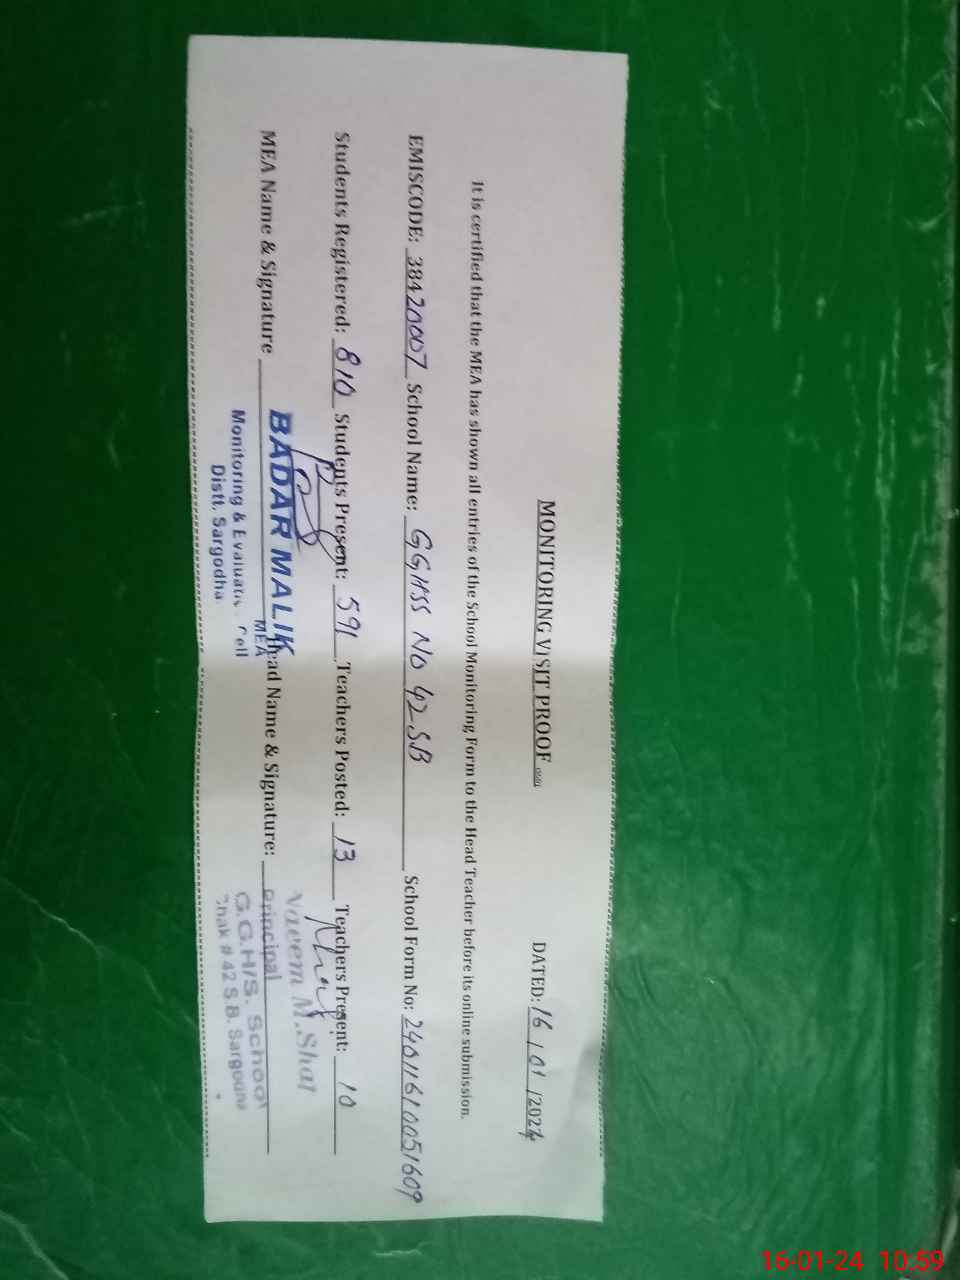 MONITORING VISIT PROOF
DATED: 16 / 01 / 2024
It is certified that the MEA has shown all entries of the School Monitoring Form to the Head Teacher before its online submission.
EMISCODE: 38420007 School Name: GGHSS No 42 SB School Form No: 24011610051609
Students Registered: 810 Students Present: 591 Teachers Posted: 13 Teachers Present: 10
MEA Name & Signature Head Name & Signature:
BADAR MALIK
MEA
Monitoring & Evaluatio Cell
Distt. Sargodha
Naeem M.Shar
Principal
G.G.H/S. School
Chak # 42 S.B. Sargodha
16-01-24 10:59